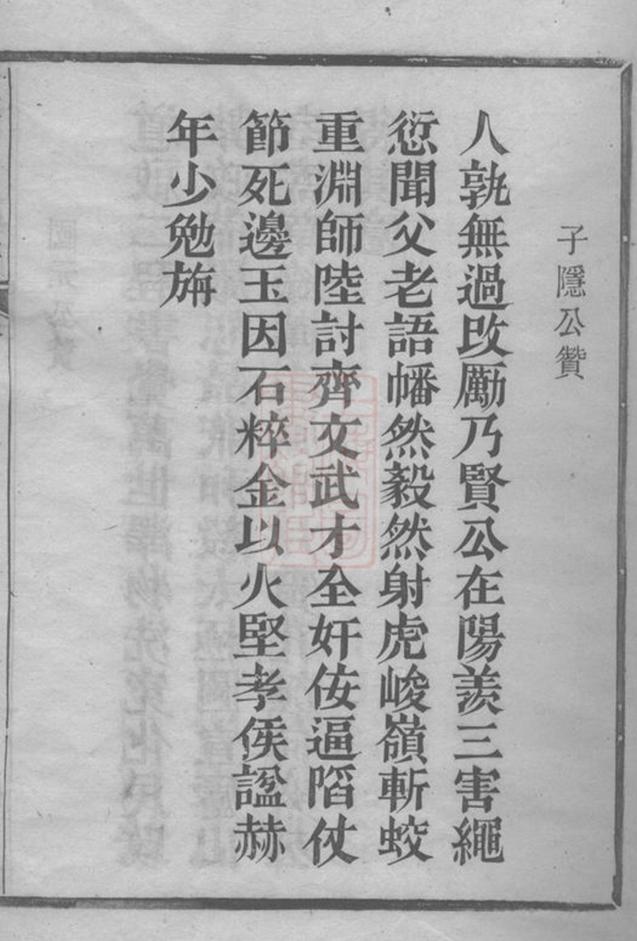 子隱公贊
人孰無過改勵乃賢公在陽羨三害繩
愆聞父老語幡然毅然射虎峻嶺斬蛟
重淵師陸討齊文武才全奸佞逼陷仗
節死邊玉因石粹金以火堅孝侯諡赫
年少勉旃